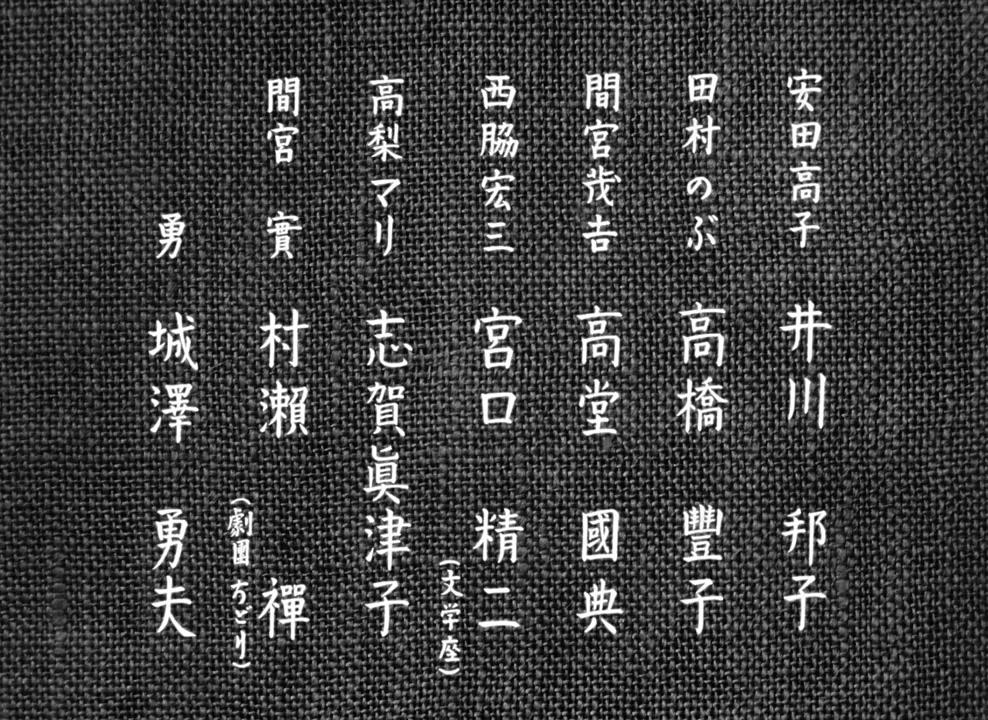 安田高子 井川邦子
田村のぶ 高橋豐子
間宮茂吉 高堂國典
西脇宏三 宮口精二
(文学座)
高梨マリ 志賀眞津子
間宮實 村瀬禪
(劇團ちどり)
勇 城澤勇夫